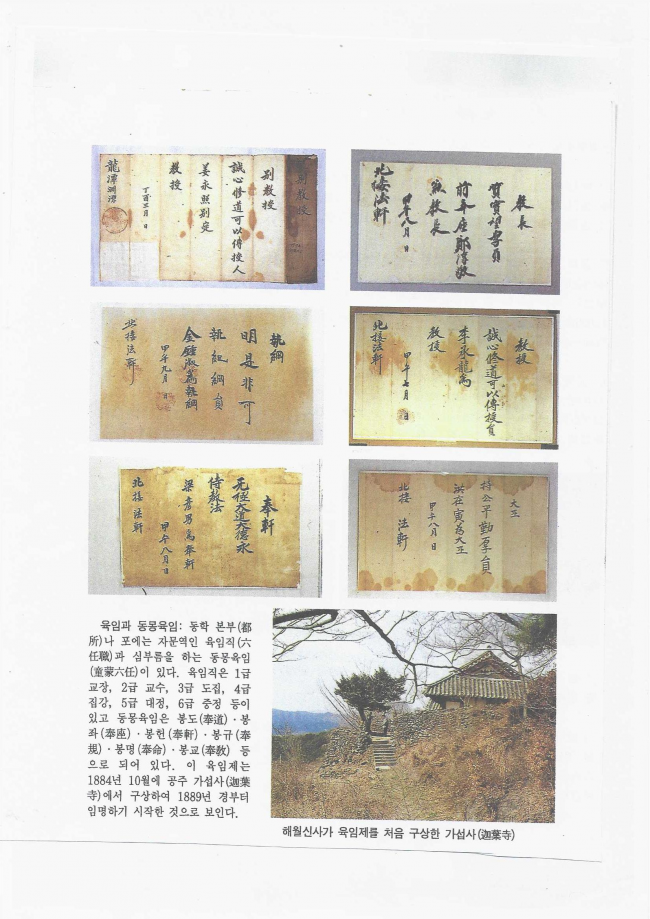 別教授
別教授
誠心修道可以傳授人
教授
丁酉三月 日
龍潭淵源
教長
質實望厚員
教長
甲午八月 日
北接法軒
執綱
明是非可
執紀綱員
爲執綱
甲午九月 日
北接法軒
教授
誠心修道可以傳授員
李永龍爲
教授
甲午七月 日
北接法軒
奉軒
无極大道大德永
侍教法
梁彦男爲奉軒
甲午八月日
北接法軒
大正
持公平勤厚員
洪在寅爲大正
甲午八月 日
北接 法軒
육임과 동몽육임: 동학 본부(都
所)나 포에는 자문역인 육임직(六
任職)과 심부름을 하는 동몽육임
(童蒙六任)이 있다. 육임직은 1급
교장, 2급 교수, 3급 도집, 4급
집강, 5급 대정, 6급 중정 등이
있고 동몽육임은 봉도(奉道)·봉
좌(奉座)·봉헌(奉軒)·봉규(奉
規)·봉명(奉命)·봉교(奉敎) 등
으로 되어 있다. 이 육임제는
1884년 10월에 공주 가섭사(迦葉
寺)에서 구상하여 1889년 경부터
임명하기 시작한 것으로 보인다.
해월신사가 육임제를 처음 구상한 가섭사(迦葉寺)